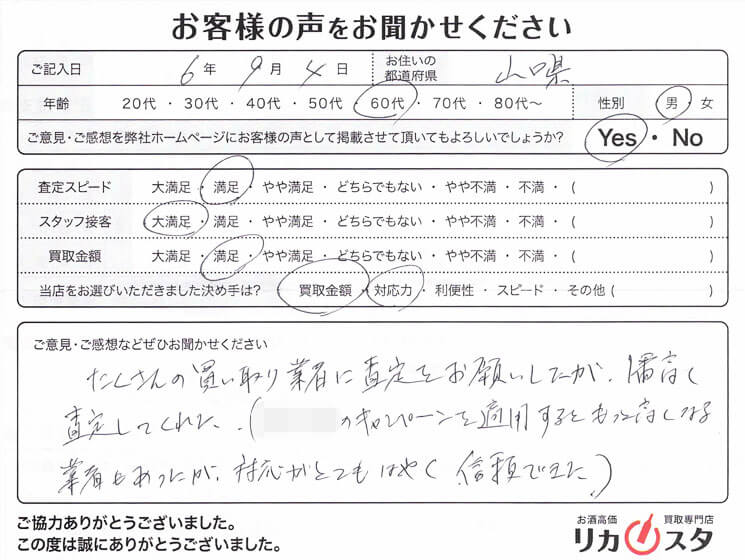 お客様の声をお聞かせください
ご記入日 6年 9月 4日 お住いの都道府県 山口県
年齢 20代 ・ 30代 ・ 40代 ・ 50代 ・ 60代 ・ 70代 ・ 80代～ 性別 男 ・ 女
ご意見・ご感想を弊社ホームページにお客様の声として掲載させて頂いてもよろしいでしょうか? Yes ・ No
査定スピード 大満足 ・ 満足 ・ やや満足 ・ どちらでもない ・ やや不満 ・ 不満 ・ ( )
スタッフ接客 大満足 ・ 満足 ・ やや満足 ・ どちらでもない ・ やや不満 ・ 不満 ・ ( )
買取金額 大満足 ・ 満足 ・ やや満足 ・ どちらでもない ・ やや不満 ・ 不満 ・ ( )
当店をお選びいただきました決め手は? 買取金額 ・ 対応力 ・ 利便性 ・ スピード ・ その他 ( )
ご意見・ご感想などぜひお聞かせください
たくさんの買い取り業者に査定をお願いしたが、1番高く
査定してくれた。(のキャンペーンを適用するともっと高くなる
業者もあったが、対応がとてもはやく信頼できた。)
ご協力ありがとうございました。
この度は誠にありがとうございました。
お酒高価 買取専門店
リカスタ